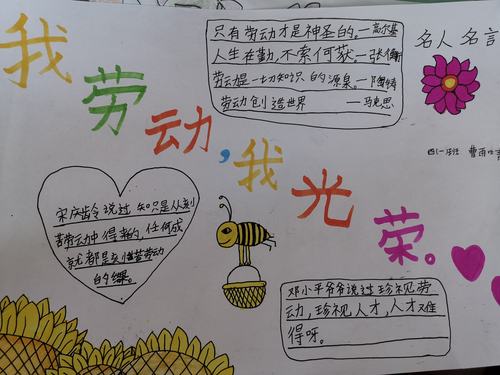 我劳动,我光荣。
只有劳动才是神圣的。—高尔基
人生在勤,不索何获。—张衡
劳动是一切知识的源泉。—陶铸
劳动创造世界 —马克思
名人名言
四(一)班 曹雨
宋庆龄说过知识是从刻
苦劳动中得来的,任何成
就都是刻苦劳动
的结果。
邓小平爷爷说过珍视劳
动,珍视人才,人才难
得呀。